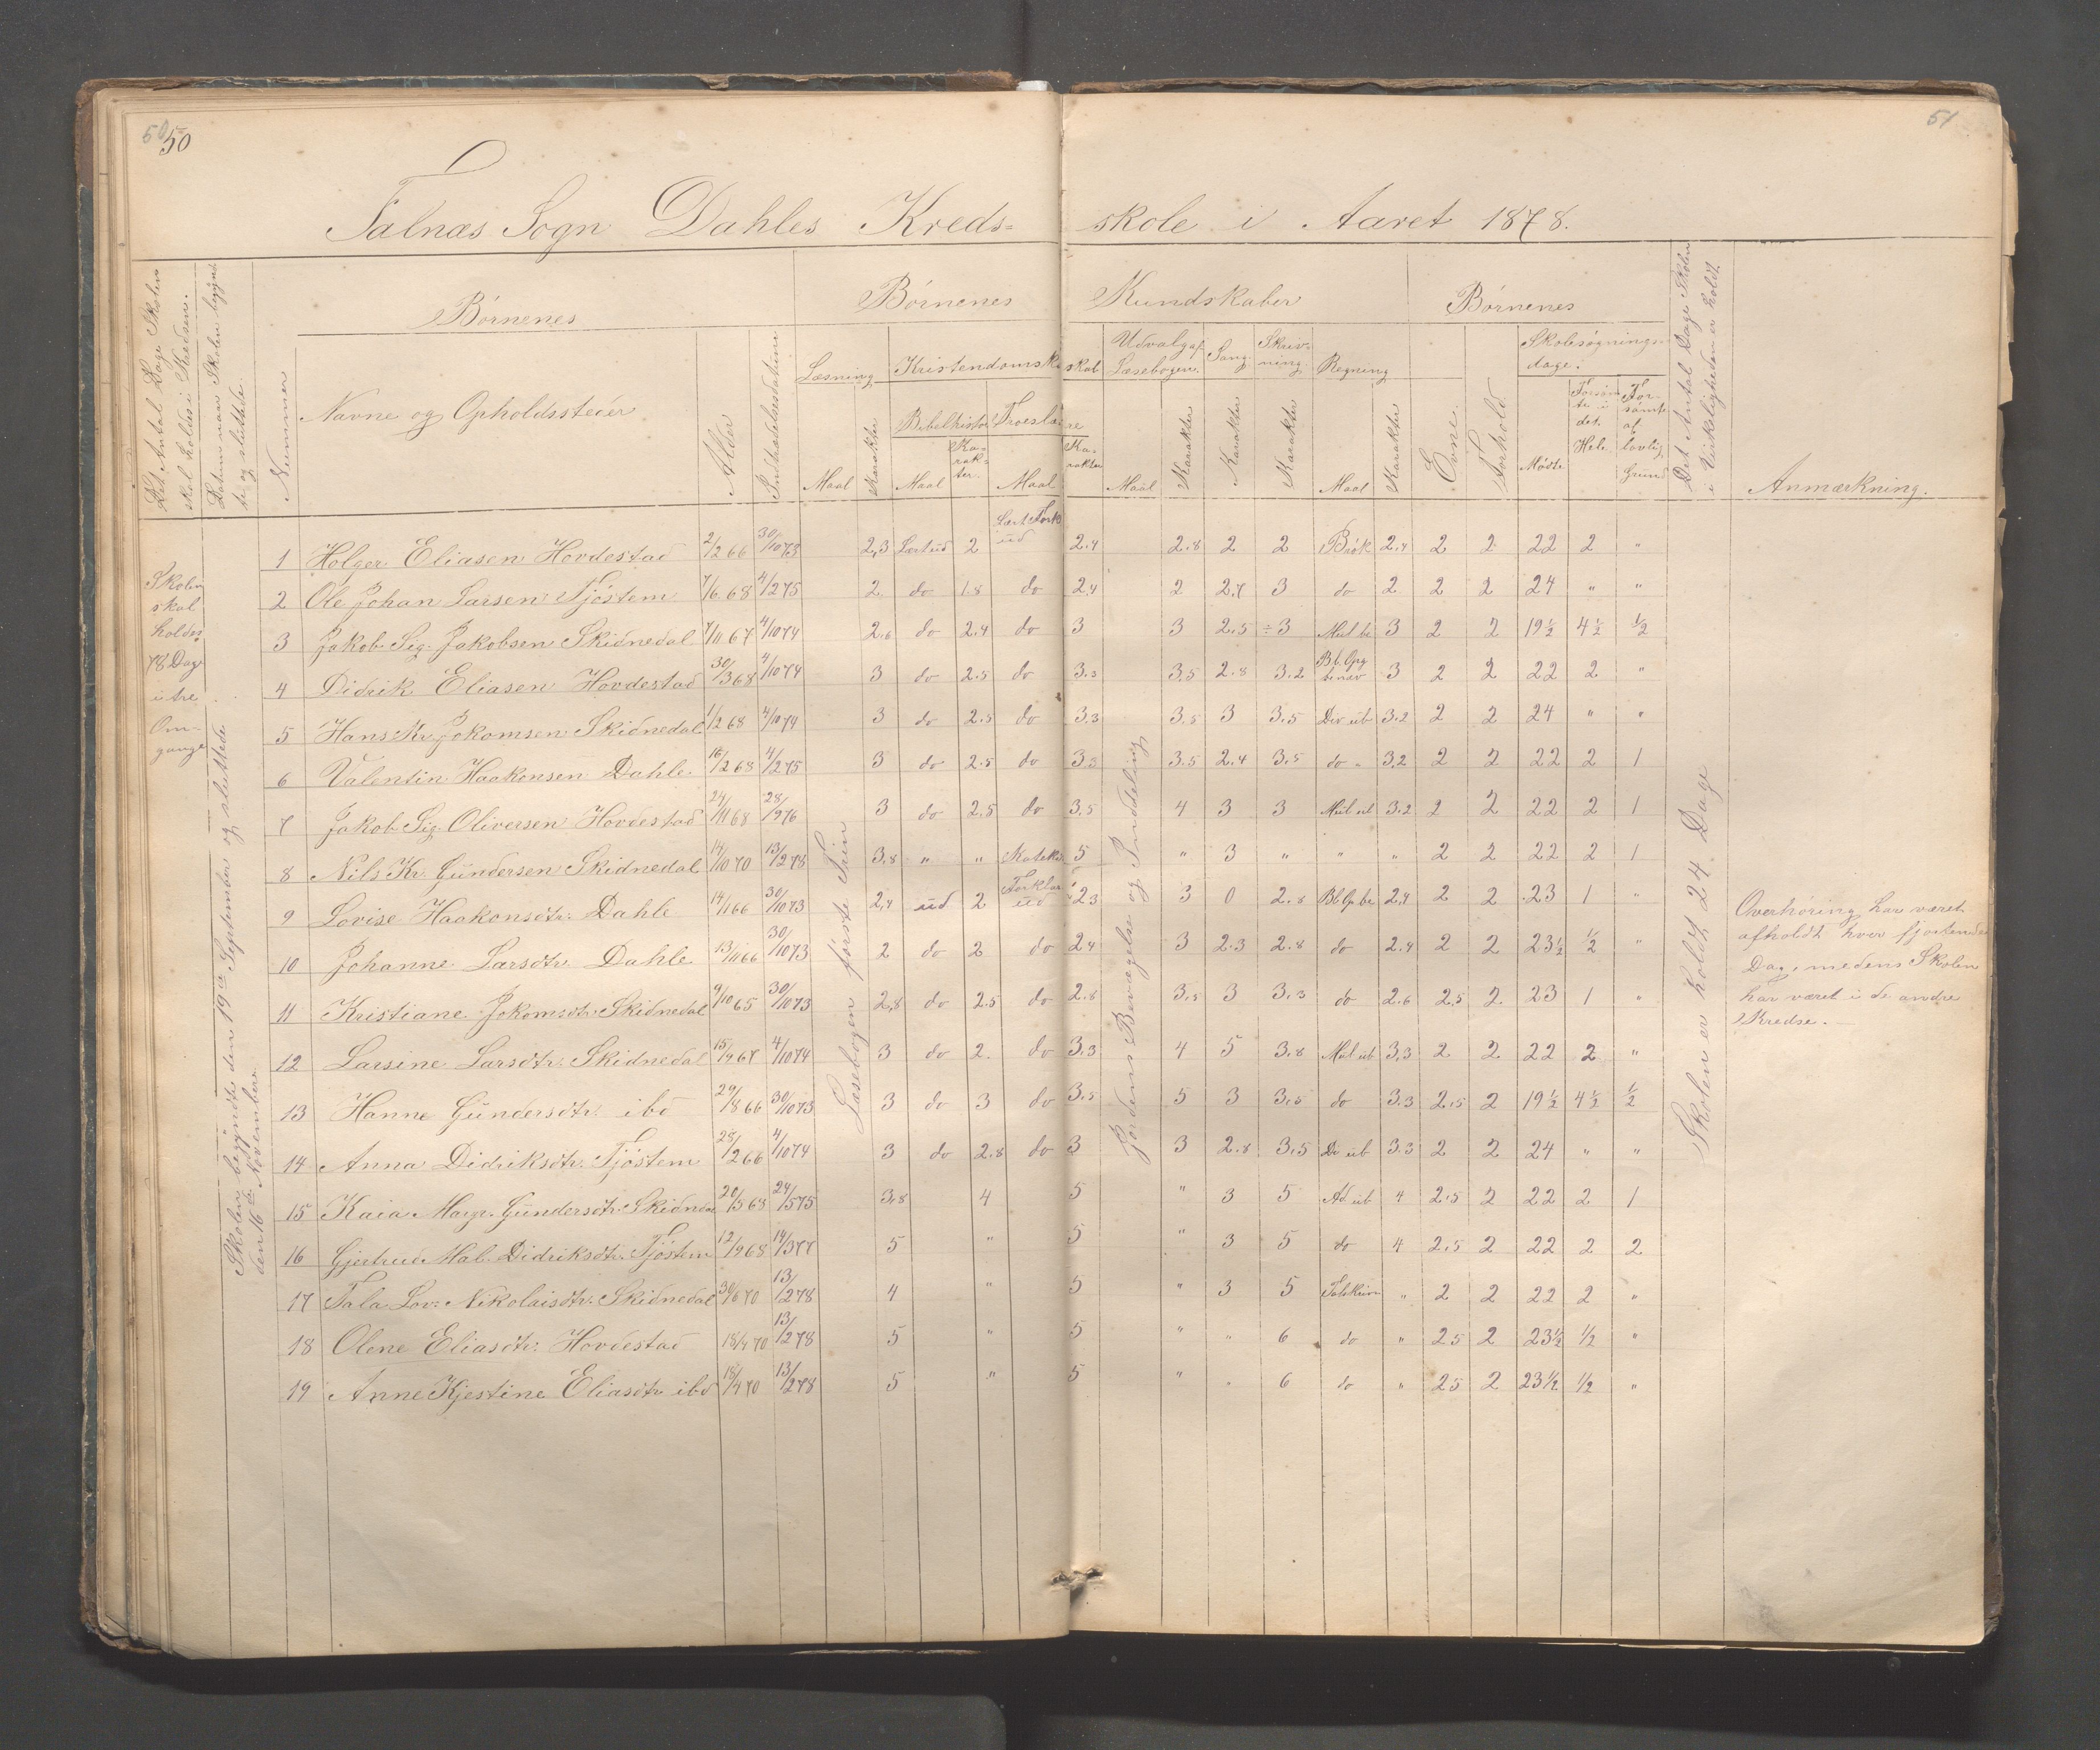 50 50
51
Falnæs Sogn Dahles Kreds-
skole i Aaret 1878.
Det Antal Dage Skolen
skal holdes i Kredsen.
Datum naar Skolen begynd-
te og sluttede.
Nummer
Børnenes
Navne og Opholdssteder
Alder
Indtrædelsesdatum
Børnenes
Kundskaber
Læsning
Maal
Karakter
Kristendomsk
skab
Bibelhistor
Maal
Ka-
rak-
ter.
Troeslæ
re
Maal
Ka-
rakter
Udvalg af
Læsebogen.
Maal
Karakter
Sang
Karakter
Skriv-
ning.
Karakter
Regning
Maal
Karakter
Børnenes
Evne.
Forhold.
Skolesøgnings-
dage.
Mødte
Forsøm
te i
det
Hele
For-
sømte
af
lovlig
Grund
Det Antal Dage Skolen
i Virkeligheden er holdt.
Anmærkning.
1 Holger Eliasen Hovdestad 2/2 66 30/10 73 2,3 Lært ud 2 Lært Fork ud 2.4 2.8 2 2 Brøk 2.4 2 2 22 2 "
2 Ole Johan Larsen Tjøstem 7/6 68 4/2 75 2 do 1.8 do 2,4 2 2,7 3 do 2 2 2 24 " "
3 Jakob Sig. Jakobsen Skidnedal 7/11 67 4/10 74 2.6 do 2.4 do 3 3 2.5 ÷3 Mul be 3 2 2 19½ 4½ ½
4 Didrik Eliasen Hovdestad 30/3 68 4/10 74 3 do 2.5 do 3.3 3,5 2.8 3.2 Bb. Opg benæv 3 2 2 22 2 "
5 Hans Kr. Jokomsen Skidnedal 1/2 68 4/10 74 3 do 2.5 do 3,3 3.5 3 3.5 Div ub 3.2 2 2 24 " "
6 Valentin Haakonsen Dahle 16/2 68 4/2 75 3 do 2.5 do 3,3 3.5 2.4 3,5 do 3,2 2 2 22 2 1
7 Jakob Sig. Oliversen Hovdestad 24/11 68 28/9 76 3 do 2,5 do 3,5 4 3 3 Mul ub 3,2 2 2 22 2 1
8 Nils Kr. Gundersen Skidnedal 14/10 70 13/2 78 3,8 " " Katek. 5 " 3 " " " 2 2 22 2 1
9 Lovise Haakonsdtr. Dahle 14/1 66 30/10 73 2,4 ud 2 Forklar ud 2,3 3 0 2.8 Bb Op be 2,4 2 2 23 1 "
10 Johanne Larsdtr. Dahle 13/11 66 30/10 73 2 do 2 do 2,4 3 2.3 2.8 do 2.4 2 2 23½ ½ "
11 Kristiane Jokomsdtr. Skidnedal 9/10 65 30/10 73 2,8 do 2.5 do 2.8 3.5 3 3.3 do 2.6 2,5 2. 23 1 "
12 Larsine Larsdtr. Skidnedal 15/9 67 4/10 74 3 do 2. do 3,3 4 5 3.8 Mul ub 3,3 2 2 22 2 "
13 Hanne Gundersdtr. ibd 29/8 66 30/10 73 3 do 3 do 3,5 5 3 3,5 do 3.3 2,5 2 19½ 4½ ½
14 Anna Didriksdtr. Tjøstem 28/2 66 4/10 74 3 do 2.8 do 3 3 2.8 3,5 Div ub 3.3 2 2 24 " "
15 Kaia Margr. Gundersdtr. Skidneda 20/5 68 24/5 75 3,8 4 5 " 3 5 Ad ub 4 2,5 2 22 2 1
16 Gjertrud Mal. Didriksdtr. Tjøstem 12/9 68 14/3 77 5 " 5 " 3 5 do 4 2,5 2 22 2 2
17 Tala Lov. Nikolaisdtr. Skidnedal 30/6 70 13/2 78 4 " 5 " 3 5 Talskriv " 2 2 22 2 "
18 Olene Eliasdtr. Hovdestad 18/4 70 13/2 78 5 " 5 " " 6 do " 2 5 2 23½ ½ "
19 Anne Kjestine Eliasdtr ibd 18/4 70 13/2 78 5 " 5 " " 6 do " 2 5 2 23½ ½ "
Skolen
skal
holdes
78 Dage
i tre
Om-
gange
Skolen begyndte den 19de September og sluttede
den 16de November.
Læsebogen første Trin
Jordens Bevægelse og Inddeling
Skolen er holdt 24 Dage
Overhøring har været
afholdt hver fjortende
Dag, medens Skolen
har været i de andre
Kredse.